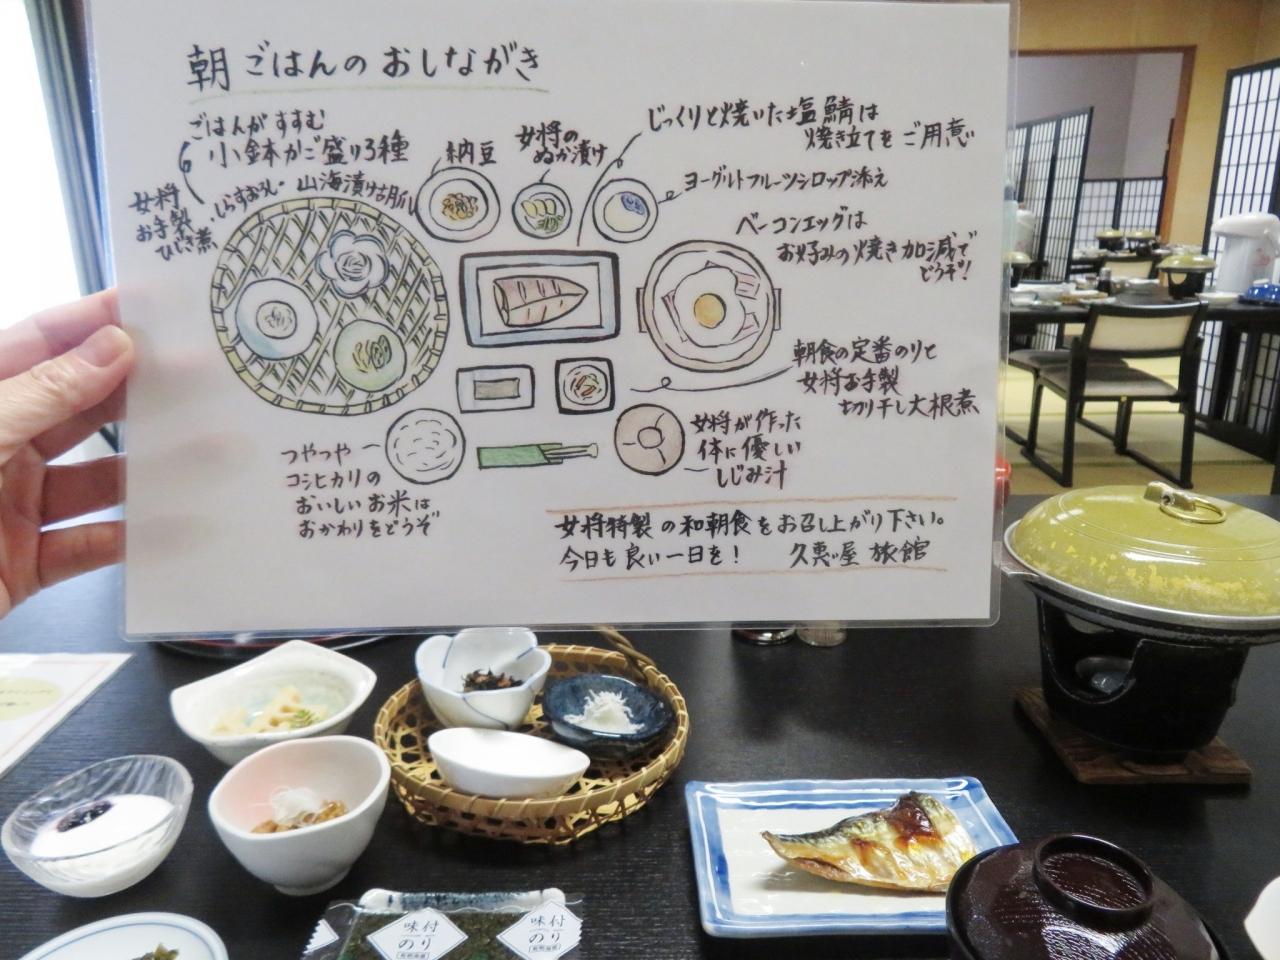 朝ごはんのおしながき
ごはんがすすむ
小鉢かご盛り3種
女将
お手製
ひじき煮
しらすおろし
山海漬け胡瓜
納豆
女将の
ぬか漬け
じっくりと焼いた塩鯖は
焼き立てをご用意
ヨーグルトフルーツシロップ添え
ベーコンエッグは
お好みの焼き加減で
どうぞ!
朝食の定番のりと
女将お手製
切り干し大根煮
つやつや
コシヒカリの
おいしいお米は
おかわりをどうぞ
女将が作った
体に優しい
しじみ汁
女将特製の和朝食をお召し上がり下さい。
今日も良い一日を! 久恵屋旅館
味付
のり
味付
のり